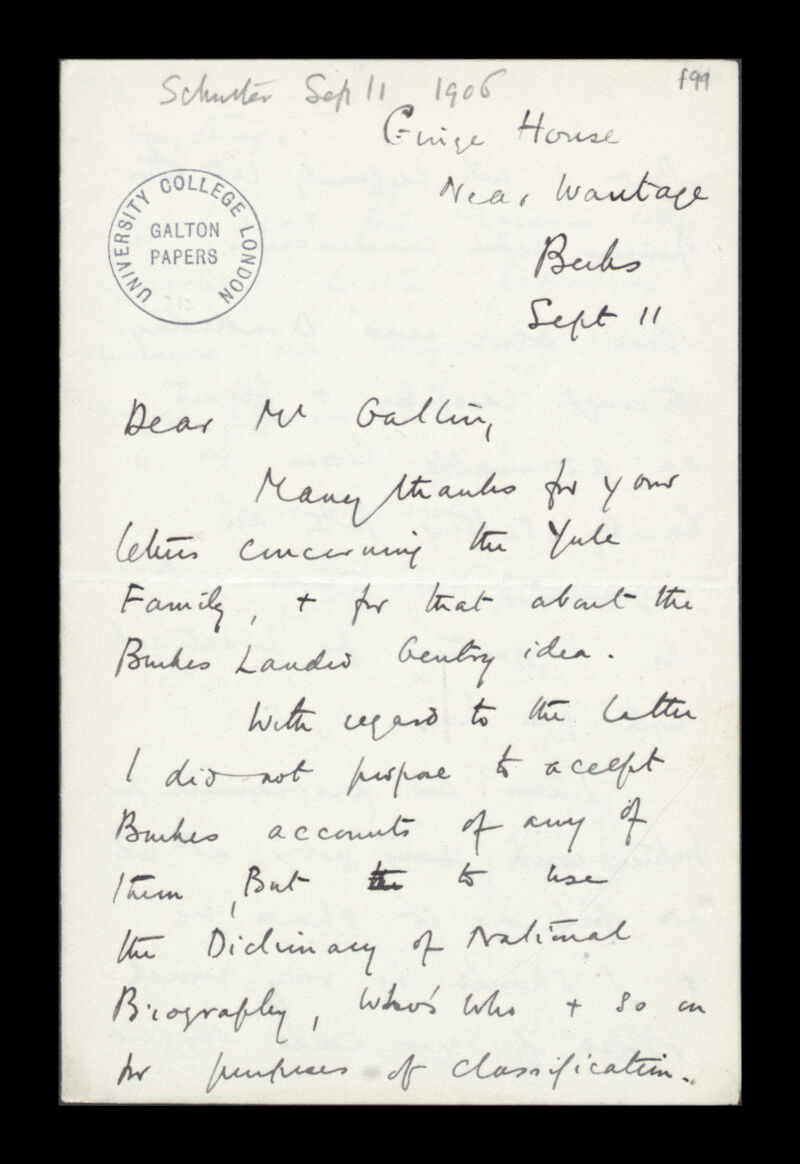 Schuster Sep 11 1906
f99
Ginge House
Near Wantage
Berks
Sept 11
UNIVERSITY COLLEGE LONDON
GALTON
PAPERS
Dear Mr Galton,
Many thanks for your
letters concerning the Yule
Family, + for that about the
Burkes Landed Gentry idea.
With regard to the latter
I did not propose to accept
Burkes accounts of any of
them, But to use
the Dictionary of National
Biography, Who's Who + so on
for purposes of classification.